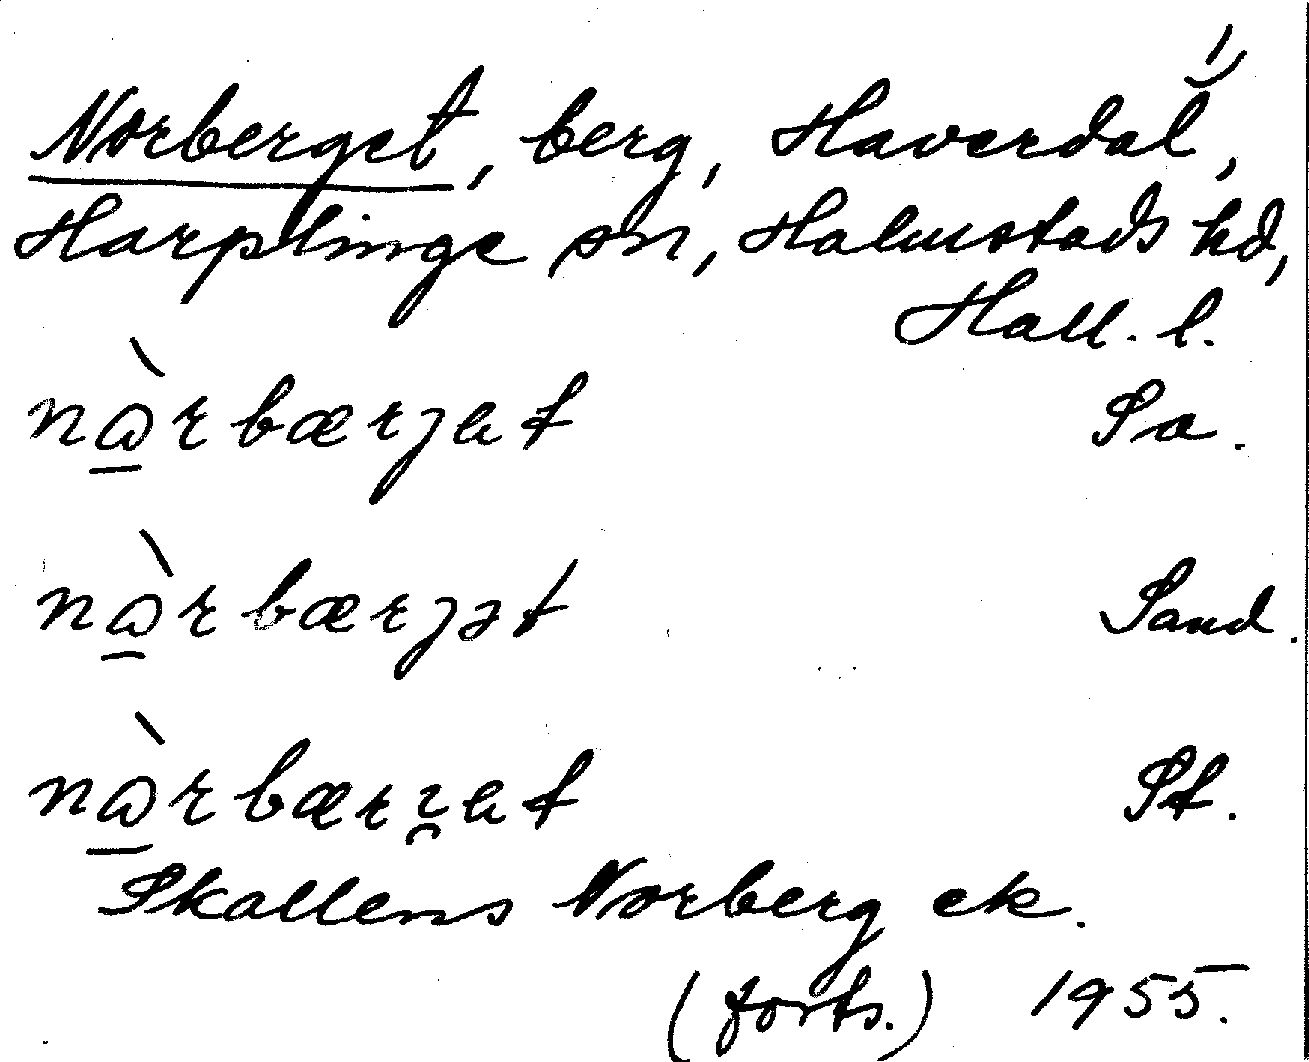 1)
Norberget, berg, Haverdal,
Harplinge sn, Halmstads hd,
Hall. l.
nɷ̠̀rbærjet Sa.
nɷ̠̀rbærjət Sand.
nɷ̠̀rbærı̯et St.
Skallens Norberg ek.
(forts.) 1955.